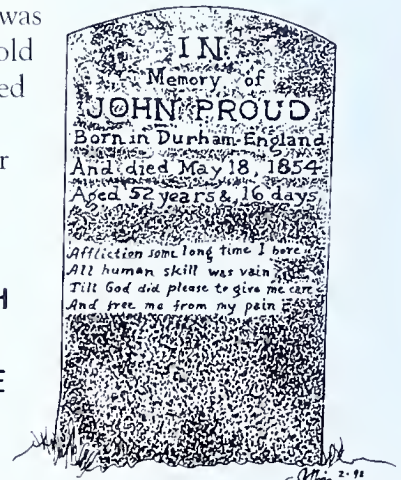 was
old
ed
r
H
E
IN
Memory of
JOHN PROUD
Born in Durham-England
And died May 18, 1854
Aged 52 years &, 16 days
Affliction some long time I bore
All human skill was vain
Till God did please to give me care
And free me from my pain
2-98